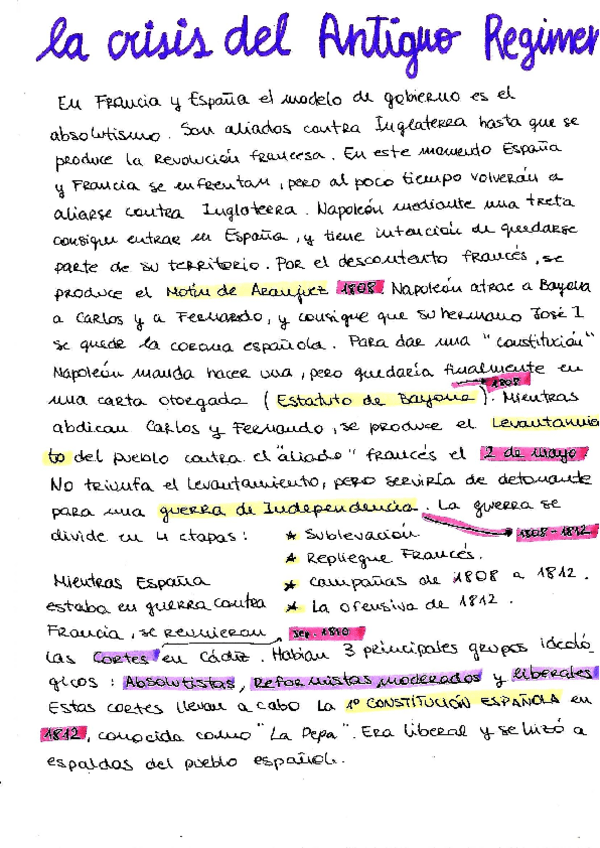 la crisis del Antiguo Regimen
En Francia y España el modelo de gobierno es el
absolutismo. Son aliados contra Inglaterra hasta que se
produce la Revolución francesa. En este momento España
y Francia se enfrentan, pero al poco tiempo volverán a
aliarse contra Inglaterra. Napoleón mediante una treta
consigue entrar en España, y tiene intención de quedarse
parte de su territorio. Por el descontento francés, se
produce el Motín de Aranjuez 1808. Napoleón atrae a Bayona
a Carlos y a Fernando, y consigue que su hermano José I
se quede la corona española. Para dar una "constitución"
Napoleón manda hacer una, pero quedaría finalmente en
1808
una carta otorgada (Estatuto de Bayona). Mientras
abdican Carlos y Fernando, se produce el Levantamien
to del pueblo contra el "aliado" francés el 2 de mayo
No triunfa el levantamiento, pero serviría de detonante
para una guerra de Independencia. La guerra se
divide en 4 etapas: ★ Sublevación. 1808-1812
★ Repliegue Francés.
Mientras España ★ Campañas de 1808 a 1812.
estaba en guerra contra ★ La ofensiva de 1812.
Francia, se reunieron sep. 1810
las Cortes en Cádiz. Habían 3 principales grupos ideoló
gicos: Absolutistas, Reformistas moderados y liberales
Estas cortes llevan a cabo la 1º CONSTITUCIÓN ESPAÑOLA en
1812, conocida como "La Pepa". Era liberal y se hizó a
espaldas del pueblo español.